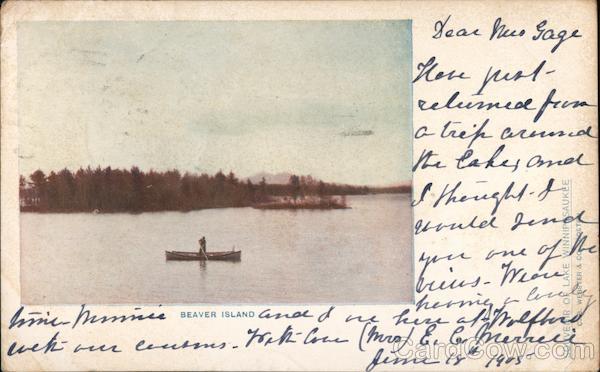 Dear Mrs Gage
Have just
returned from
a trip around
the Lake, and
I thought I
would send
you one of the
views. We are
having a lovely
time. Minnie and I are here at Wolfboro
with our cousins. With love (Mrs) E. E. Merrill
June 18th 1905
BEAVER ISLAND
OF LAKE WINNIPESAUKEE
WEBSTER & CO.
CardCow.com